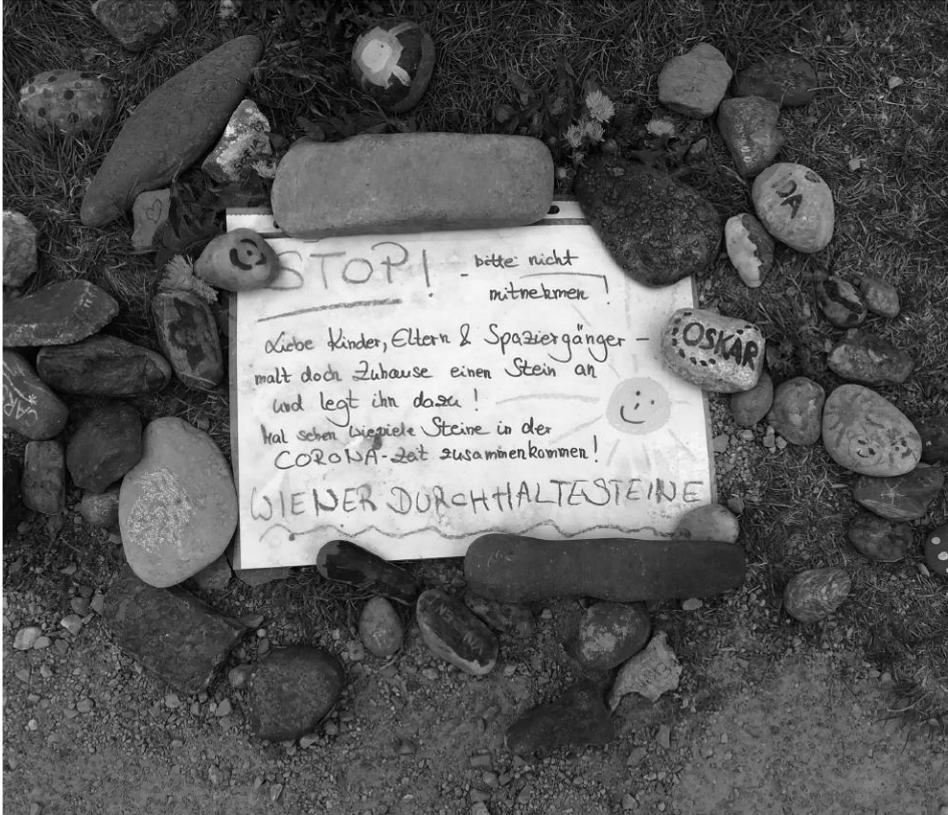 STOP! - bitte nicht
mitnehmen!
Liebe Kinder, Eltern & Spaziergänger -
malt doch Zuhause einen Stein an
und legt ihn dazu!
Mal sehen wieviele Steine in der
CORONA-Zeit zusammenkommen!
WIENER DURCHHALTESTEINE
IDA
OSKAR